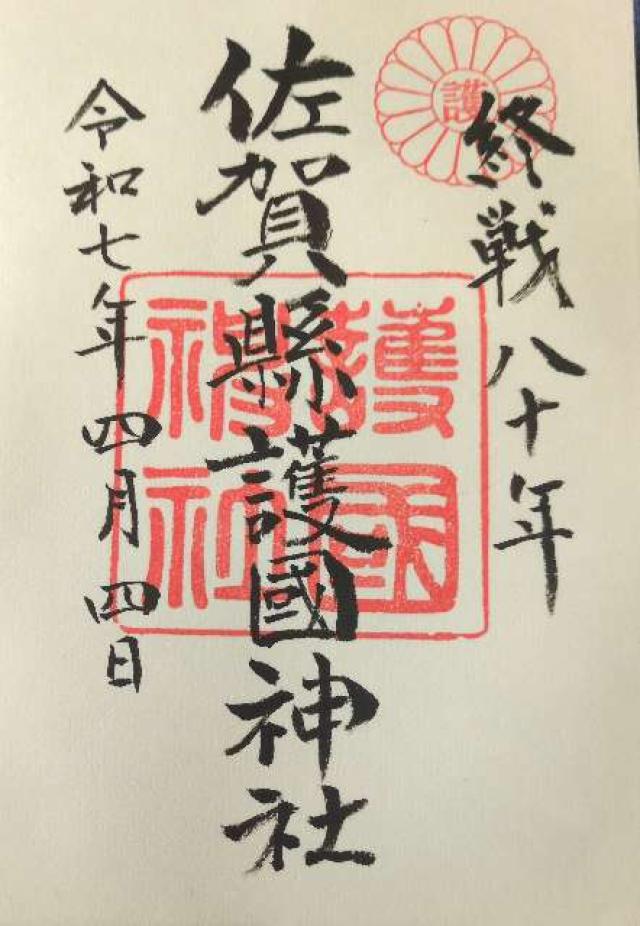 護
終戦八十年
佐賀縣護國神社
護國
神社
令和七年四月四日